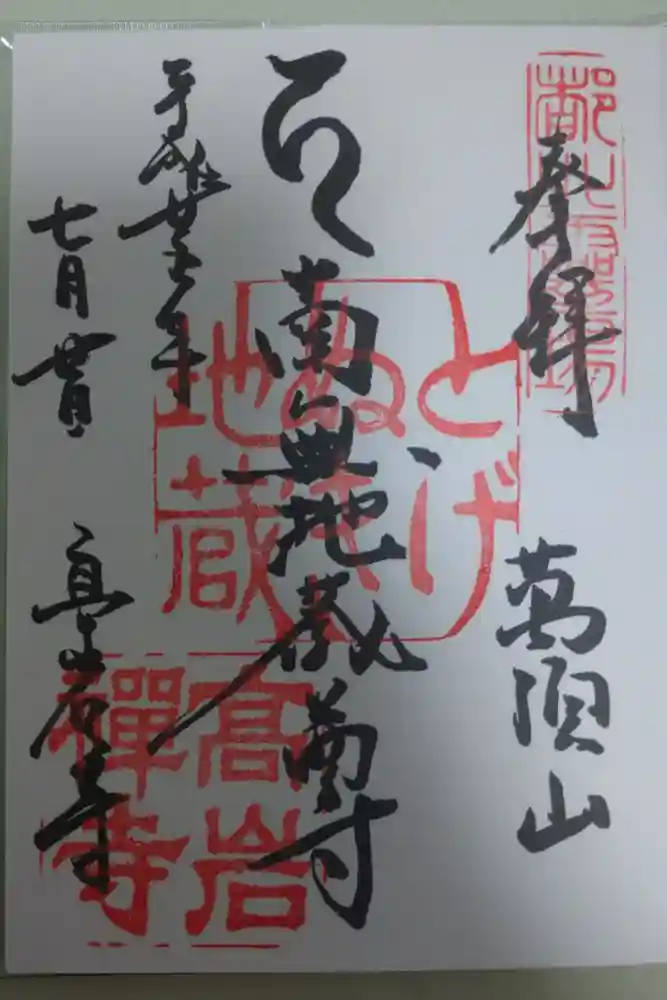 奉拝
萬頂山
南無地蔵尊
平成廿五年
七月廿日
高岩寺
とげ
ぬき
地蔵
高岩
禪寺